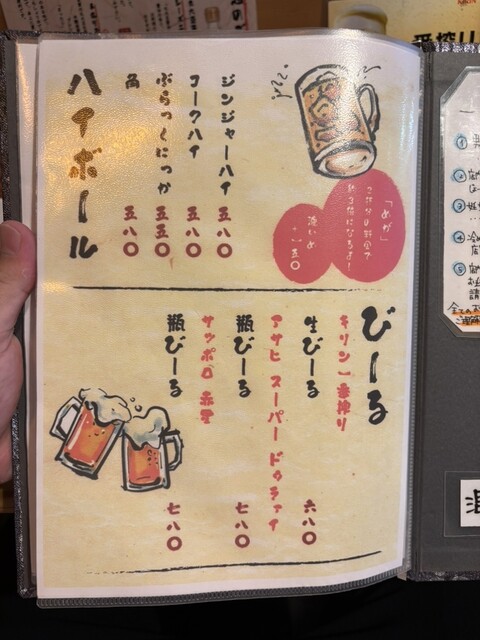 びーる
キリン一番搾り
生びーる 六八〇
アサヒ スーパードゥラァイ
瓶びーる 七八〇
サッポロ 赤星
瓶びーる 七八〇
ハイボール
角 五八〇
ぶらっくにっか 五五〇
コークハイ 五八〇
ジンジャーハイ 五八〇
「めが」
濃いめ